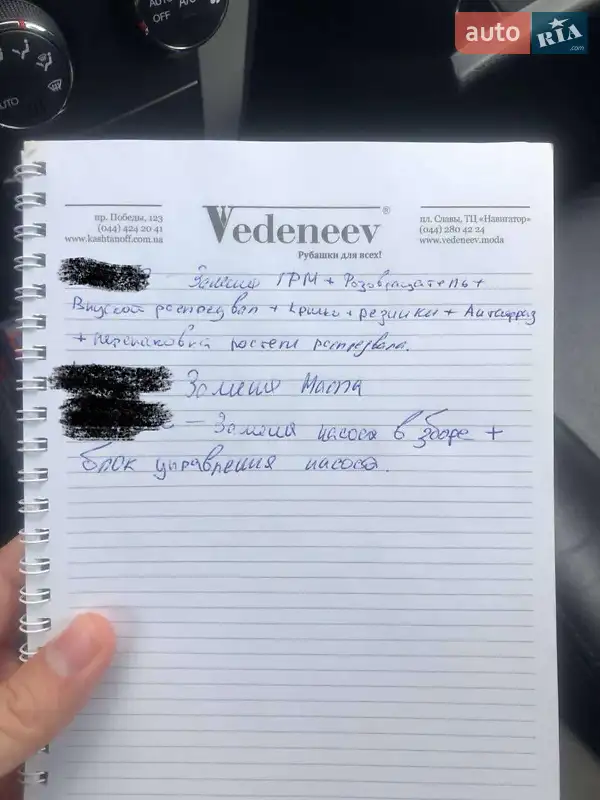 AUTO
A/C
OFF
AUTO
auto RIA .com
пр. Победы, 123
(044) 424 20 41
www.kashtanoff.com.ua
Vedeneev®
Рубашки для всех!
пл. Славы, ТЦ «Навигатор»
(044) 280 42 24
www.vedeneev.moda
Замена ГРМ + Фазовращатель +
Впускной распредвал + крышк + резинки + Антифриз
+ перепаковка
Замена Масла
- Замена насоса в зборе +
блок управления насоса.